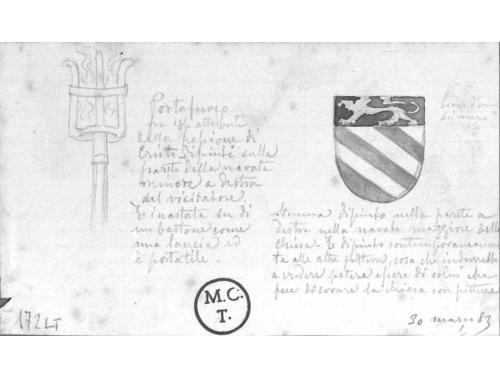 Portafuoco
fra gli attributi
della passione di
Cristo dipinti sulla
parete della navata
minore a destra
del visitatore.
È inastata su di
un bastone come
una lancia ed
è portatile.
Leone d'oro
Stemma dipinto nella parete a
destra nella navata maggiore della
chiesa. È dipinto contemporaneamen
te alle altre pitture, cosa che indurrebbe
a credere potere essere di colui che
fece decorare la chiesa con pitture
M.C.
T.
172LT
30 marzo 83